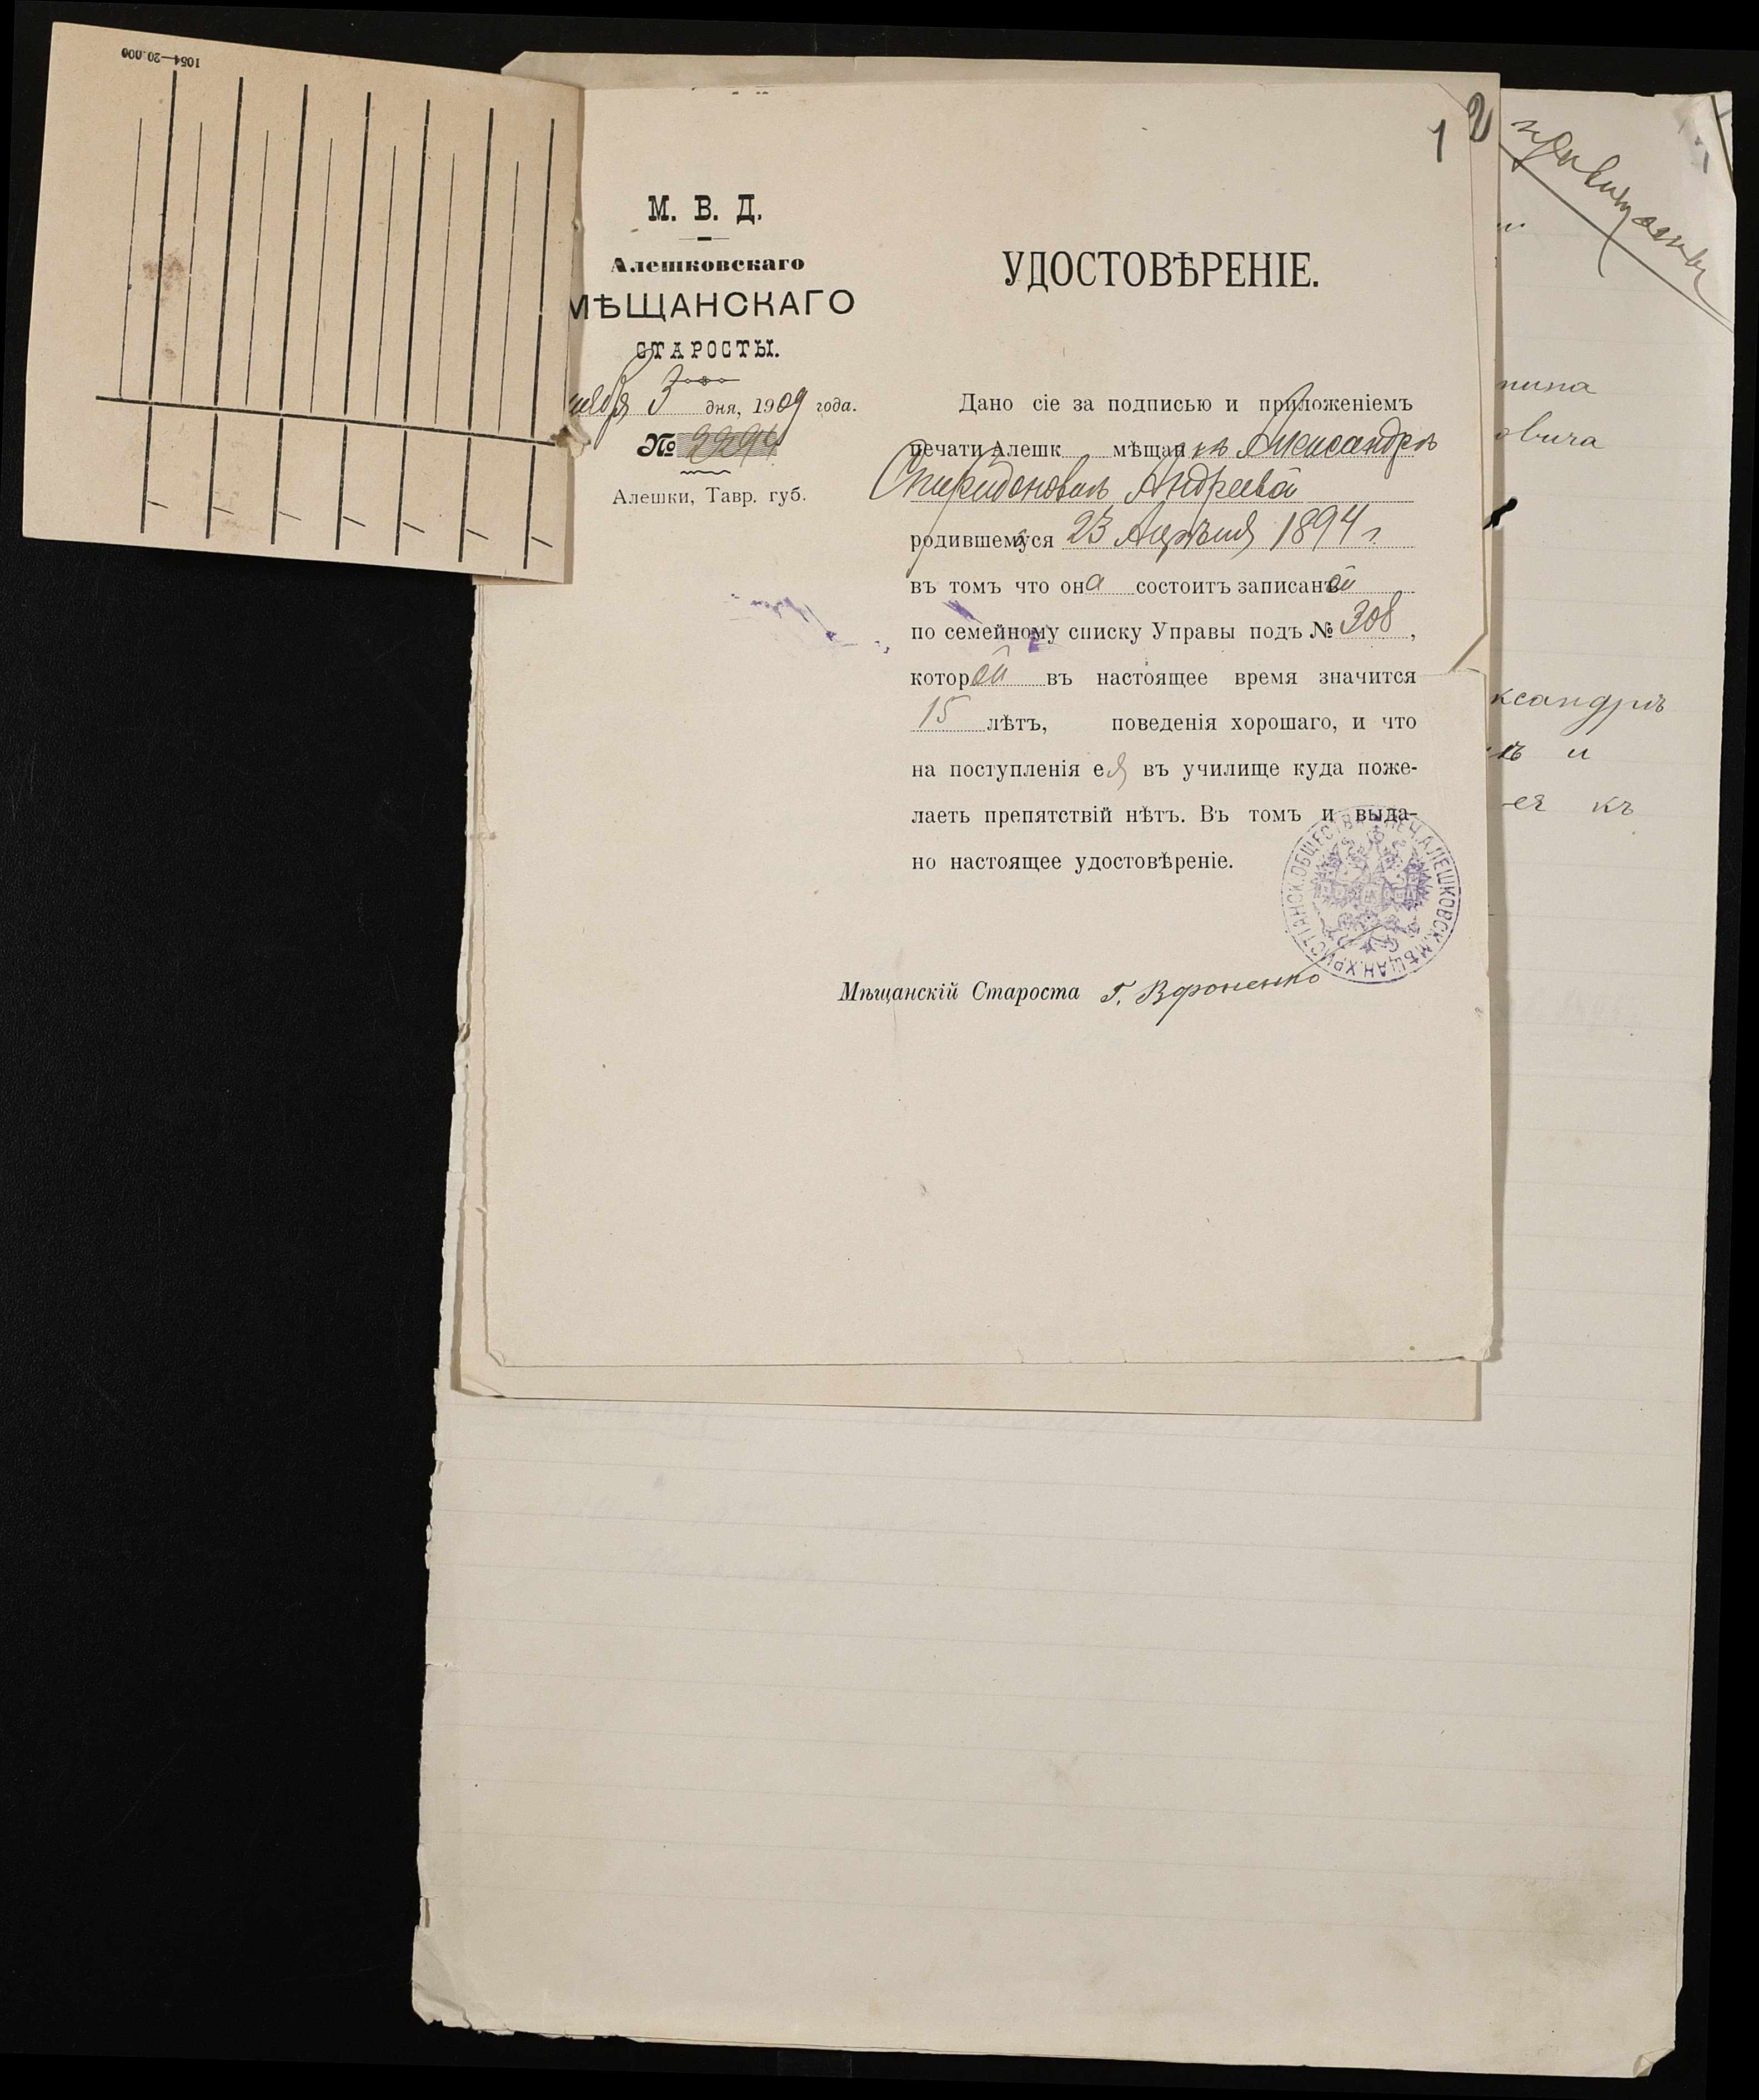 1054—20.000
1 2
М. В. Д.
Алешковскаго
МѢЩАНСКАГО
СТАРОСТЫ.
3 дня, 1909 года.
№
Алешки, Тавр. губ.
УДОСТОВѢРЕНІЕ.
Дано сіе за подписью и приложеніемъ
печати Алешк мѣщанкѣ Александрѣ
Спиридоновой Андреевой
родившемуся 23 Апрѣля 1894 г.
въ томъ что она состоитъ записанъой
по семейному списку Управы подъ № 308,
которой въ настоящее время значится
15 лѣтъ, поведенія хорошаго, и что
на поступленія ея въ училище куда поже-
лаеть препятствій нѣтъ. Въ томъ и выда-
но настоящее удостовѣреніе.
ПЕЧ. АЛЕШКОВСК. МѢЩАН. ХРИСТІАНСК. ОБЩЕСТВА
Мѣщанскій Староста Г. Вороненко
нина
овича
ксандрѣ
и
ея къ